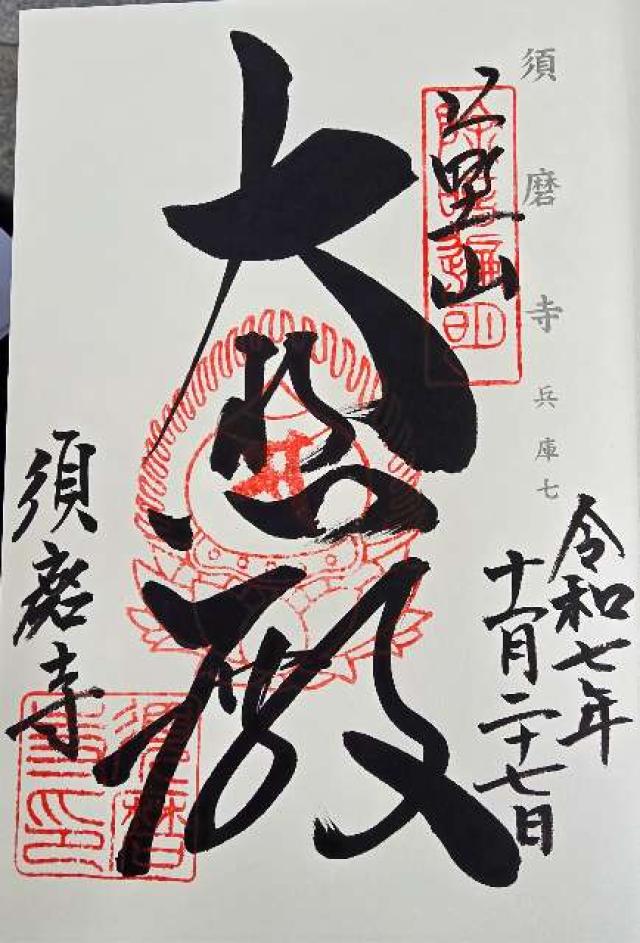 須磨寺 兵庫七
上野山
大悲殿
令和七年
十一月二十七日
須磨寺
除闇遍明
須磨寺印